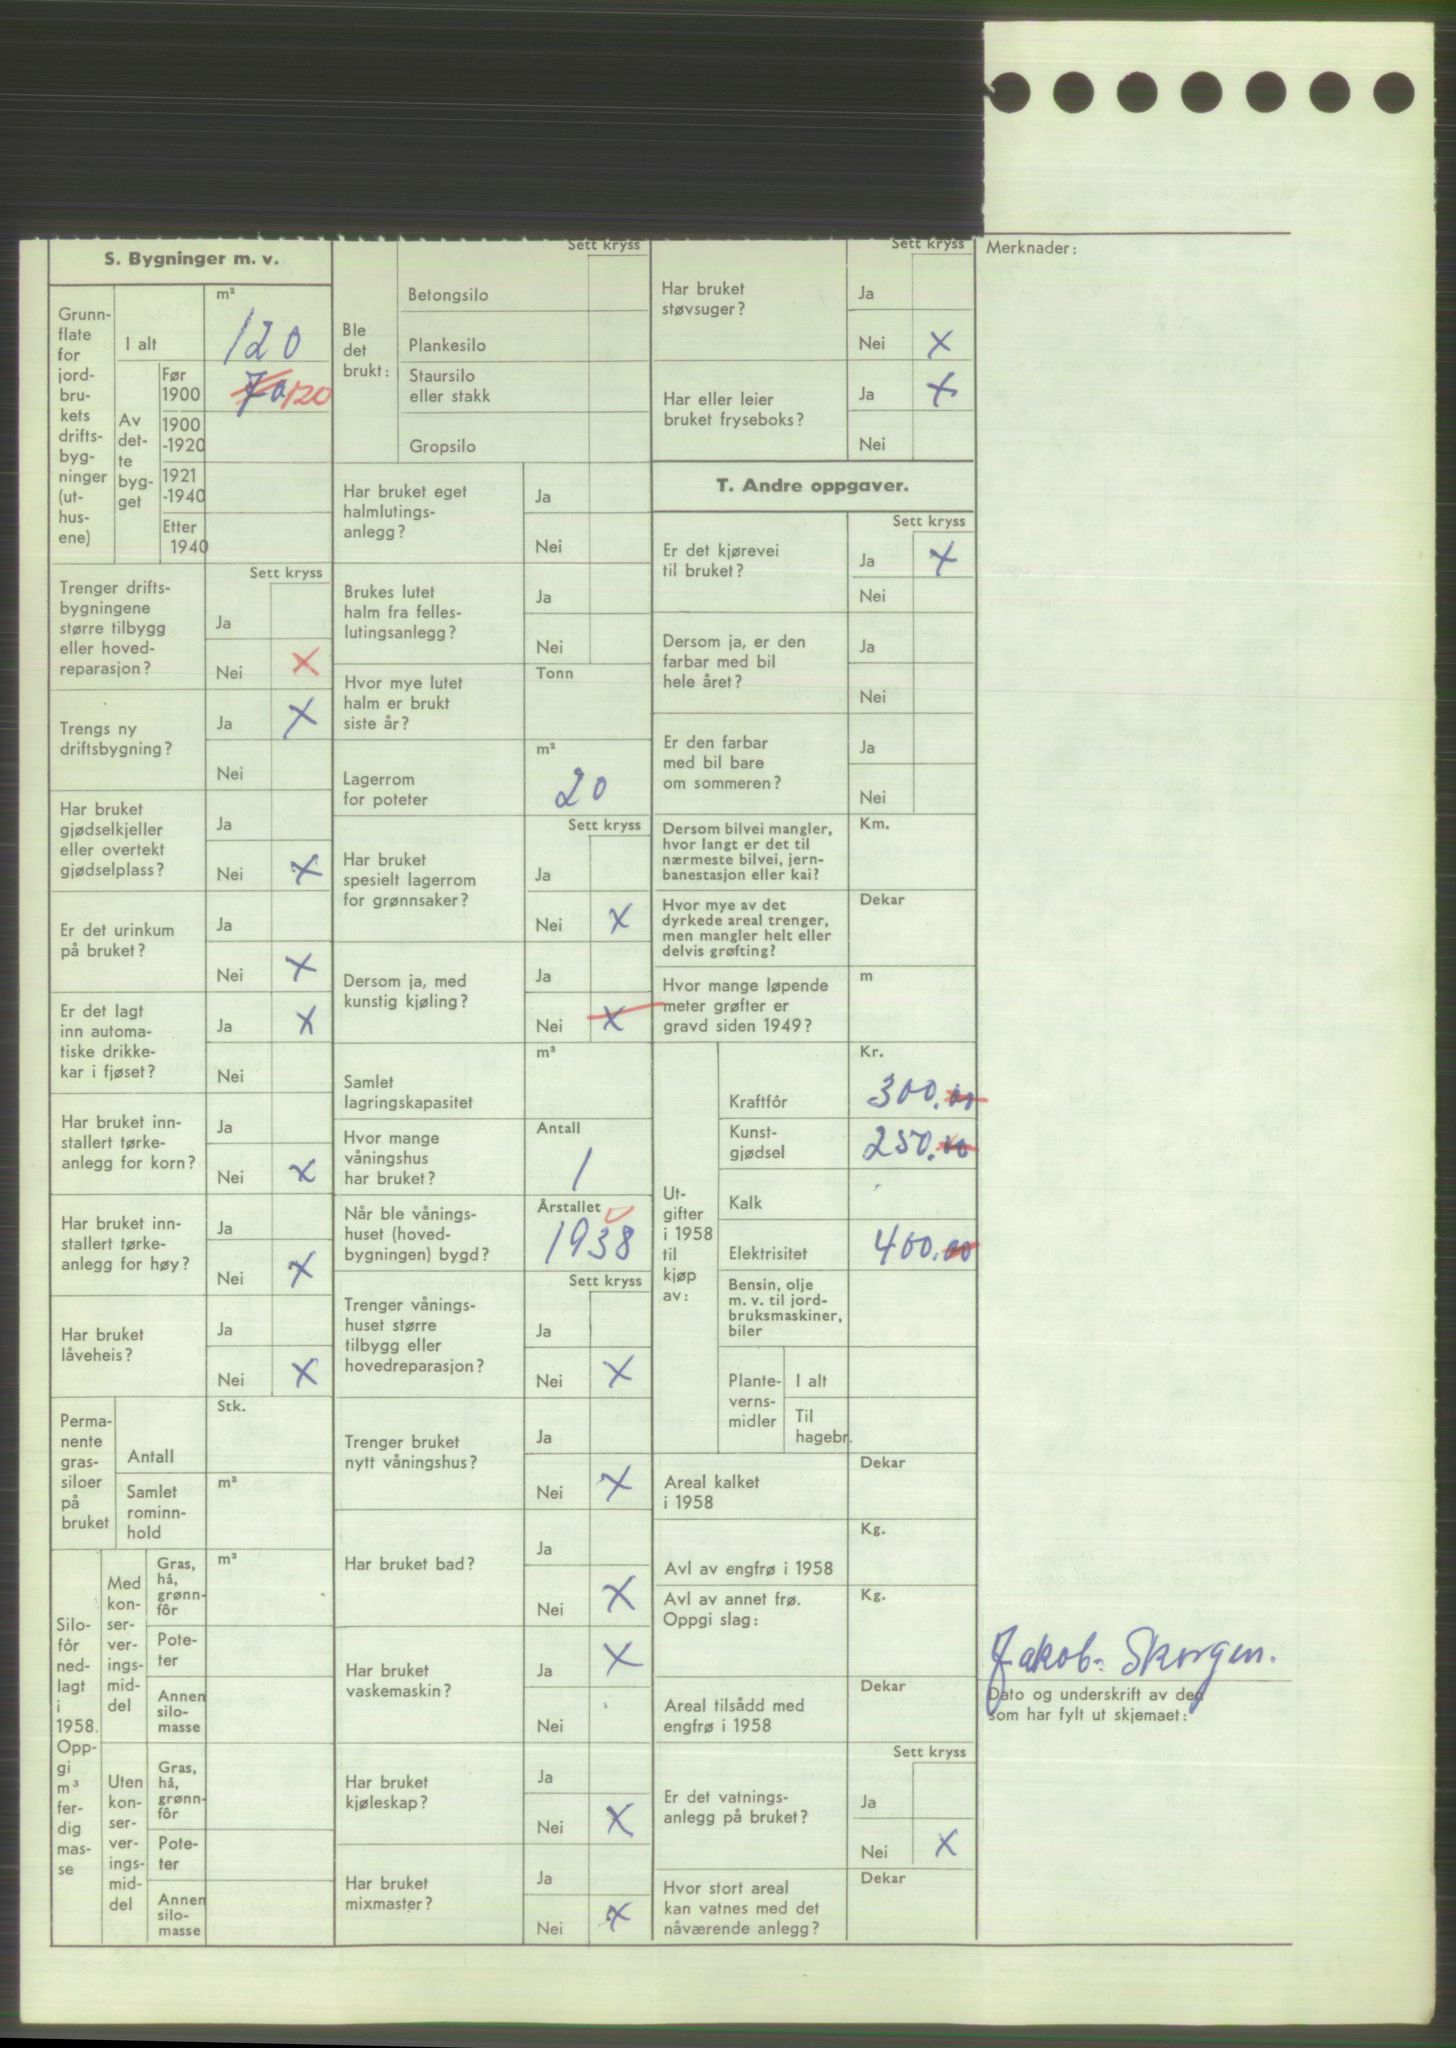 S. Bygninger m. v.
Grunn-
flate
for
jord-
bru-
kets
drifts-
byg-
ninger
(ut-
hus-
ene)
I alt
m²
120
Av
det-
te
byg-
get
Før
1900
70 120
1900
-1920
1921
-1940
Etter
1940
Sett kryss
Trenger drifts-
bygningene
større tilbygg
eller hoved-
reparasjon?
Ja
Nei X
Trengs ny
driftsbygning?
Ja X
Nei
Har bruket
gjødselkjeller
eller overtekt
gjødselplass?
Ja
Nei X
Er det urinkum
på bruket?
Ja
Nei X
Er det lagt
inn automa-
tiske drikke-
kar i fjøset?
Ja X
Nei
Har bruket inn-
stallert tørke-
anlegg for korn?
Ja
Nei X
Har bruket inn-
stallert tørke-
anlegg for høy?
Ja
Nei X
Har bruket
låveheis?
Ja
Nei X
Perma-
nente
gras-
siloer
på
bruket
Stk.
Antall
Samlet
rominn-
hold
m³
Silo-
fôr
ned-
lagt
i
1958.
Opp-
gi
m³
fer-
dig
mas-
se
Med
kon-
ser-
ver-
ings-
mid-
del
Gras,
hå,
grønn-
fôr
m³
Pote-
ter
Annen
silo-
masse
Uten
kon-
ser-
ver-
ings-
mid-
del
Gras,
hå,
grønn-
fôr
Pote-
ter
Annen
silo-
masse
Sett kryss
Ble
det
brukt:
Betongsilo
Plankesilo
Staursilo
eller stakk
Gropsilo
Har bruket eget
halmlutings-
anlegg?
Ja
Nei
Brukes lutet
halm fra felles-
lutingsanlegg?
Ja
Nei
Hvor mye lutet
halm er brukt
siste år?
Tonn
Lagerrom
for poteter
m²
20
Sett kryss
Har bruket
spesielt lagerrom
for grønnsaker?
Ja
Nei X
Dersom ja, med
kunstig kjøling?
Ja
Nei X
Samlet
lagringskapasitet
m³
Hvor mange
våningshus
har bruket?
Antall
1
Når ble vånings-
huset (hoved-
bygningen) bygd?
Årstallet
1938
Sett kryss
Trenger vånings-
huset større
tilbygg eller
hovedreparasjon?
Ja
Nei X
Trenger bruket
nytt våningshus?
Ja
Nei X
Har bruket bad?
Ja
Nei X
Har bruket
vaskemaskin?
Ja X
Nei
Har bruket
kjøleskap?
Ja
Nei X
Har bruket
mixmaster?
Ja
Nei X
Sett kryss
Har bruket
støvsuger?
Ja
Nei X
Har eller leier
bruket fryseboks?
Ja X
Nei
T. Andre oppgaver.
Sett kryss
Er det kjørevei
til bruket?
Ja X
Nei
Dersom ja, er den
farbar med bil
hele året?
Ja
Nei
Er den farbar
med bil bare
om sommeren?
Ja
Nei
Dersom bilvei mangler,
hvor langt er det til
nærmeste bilvei, jern-
banestasjon eller kai?
Km.
Hvor mye av det
dyrkede areal trenger,
men mangler helt eller
delvis grøfting?
Dekar
Hvor mange løpende
meter grøfter er
gravd siden 1949?
m
Ut-
gifter
i 1958
til
kjøp
av:
Kr.
Kraftfôr
300.00
Kunst-
gjødsel
250.00
Kalk
Elektrisitet
400.00
Bensin, olje
m. v. til jord-
bruksmaskiner,
biler
Plante-
verns-
midler
I alt
Til
hagebr.
Areal kalket
i 1958
Dekar
Avl av engfrø i 1958
Kg.
Avl av annet frø.
Oppgi slag:
Kg.
Areal tilsådd med
engfrø i 1958
Dekar
Sett kryss
Er det vatnings-
anlegg på bruket?
Ja
Nei X
Hvor stort areal
kan vatnes med det
nåværende anlegg?
Dekar
Merknader:
Jakob Skorgen.
Dato og underskrift av den
som har fylt ut skjemaet: